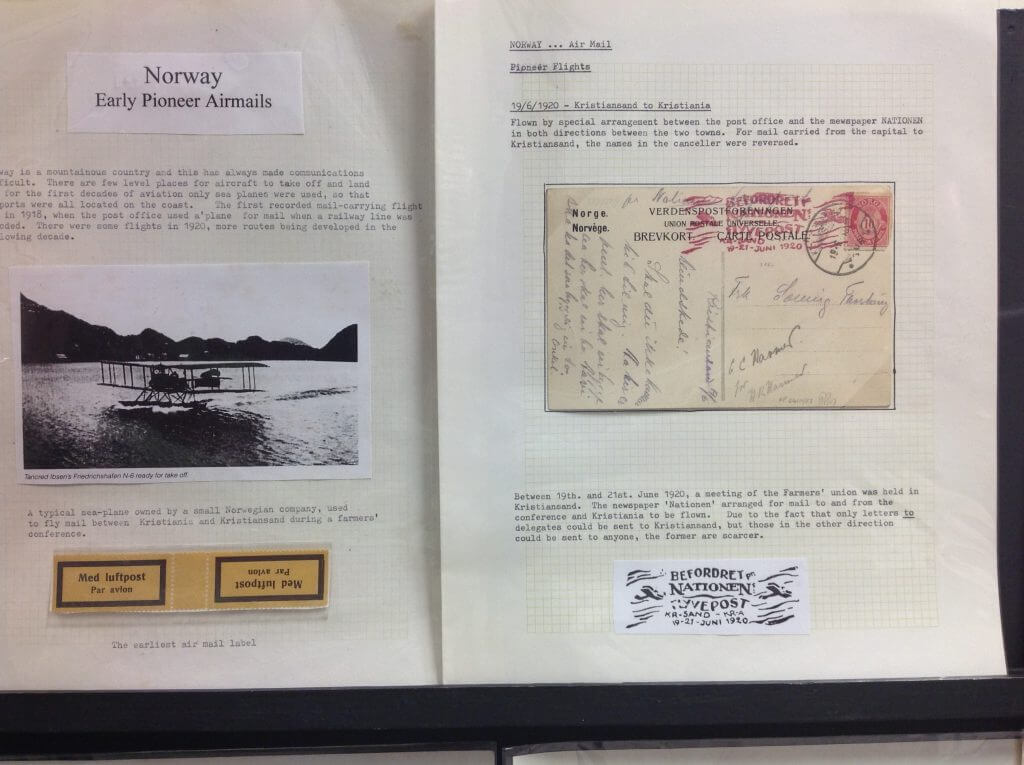 Norway
Early Pioneer Airmails
way is a mountainous country and this has always made communications
ficult. There are few level places for aircraft to take off and land
for the first decades of aviation only sea planes were used, so that
ports were all located on the coast. The first recorded mail-carrying flight
in 1918, when the post office used a'plane for mail when a railway line was
ded. There were some flights in 1920, more routes being developed in the
lowing decade.
Tancred Ibsen's Friedrichshafen N-6 ready for take off.
A typical sea-plane owned by a small Norwegian company, used
to fly mail between Kristiania and Kristiansand during a farmers'
conference.
Med luftpost
Par avion
Med luftpost
Par avion
The earliest air mail label
NORWAY ... Air Mail
Pioneer Flights
19/6/1920 - Kristiansand to Kristiania
Flown by special arrangement between the post office and the mewspaper NATIONEN
in both directions between the two towns. For mail carried from the capital to
Kristiansand, the names in the canceller were reversed.
Norge.
Norvège.
VERDENSPOSTFORENINGEN
UNION POSTALE UNIVERSELLE
BREVKORT. CARTE POSTALE
BEFORDRET pr.
NATIONENS
FLYVEPOST
KR-SAND
19-21-JUNI 1920
Between 19th. and 21st. June 1920, a meeting of the Farmers' union was held in
Kristiansand. The newspaper 'Nationen' arranged for mail to and from the
conference and Kristiania to be flown. Due to the fact that only letters to
delegates could be sent to Kristiansand, but those in the other direction
could be sent to anyone, the former are scarcer.
BEFORDRET pr.
NATIONENS
FLYVEPOST
KR-SAND - KR-A
19-21-JUNI 1920